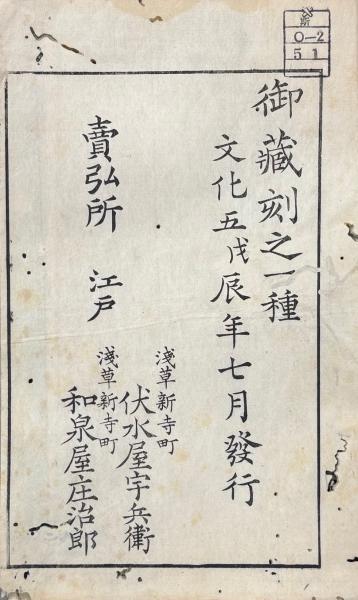 御藏刻之一種
文化五戊辰年七月發行
賣弘所 江戸
淺草新寺町
伏水屋宇兵衛
淺草新寺町
和泉屋庄治郎
O-2
51